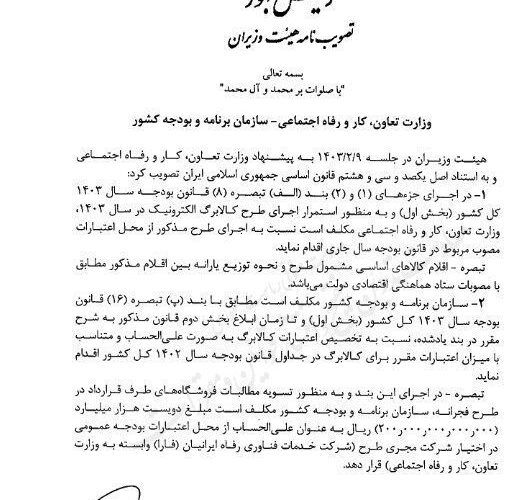 تصویب نامه هیئت وزیران
بسمه تعالی
"با صلوات بر محمد و آل محمد"
وزارت تعاون، کار و رفاه اجتماعی – سازمان برنامه و بودجه کشور
هیئت وزیران در جلسه ۱۴۰۳/۲/۹ به پیشنهاد وزارت تعاون، کار و رفاه اجتماعی
و به استناد اصل یکصد و سی و هشتم قانون اساسی جمهوری اسلامی ایران تصویب کرد:
۱- در اجرای جزءهای (۱) و (۲) بند (الف) تبصره (۸) قانون بودجه سال ۱۴۰۳
کل کشور (بخش اول) و به منظور استمرار اجرای طرح کالابرگ الکترونیک در سال ۱۴۰۳،
وزارت تعاون، کار و رفاه اجتماعی مکلف است نسبت به اجرای طرح مذکور از محل اعتبارات
مصوب مربوط در قانون بودجه سال جاری اقدام نماید.
تبصره – اقلام کالاهای اساسی مشمول طرح و نحوه توزیع یارانه بین اقلام مذکور مطابق
با مصوبات ستاد هماهنگی اقتصادی دولت می‌باشد.
۲- سازمان برنامه و بودجه کشور مکلف است مطابق با بند (پ) تبصره (۱۶) قانون
بودجه سال ۱۴۰۳ کل کشور (بخش اول) و تا زمان ابلاغ بخش دوم قانون مذکور به شرح
مقرر در بند یادشده، نسبت به تخصیص اعتبارات کالابرگ به صورت علی‌الحساب و متناسب
با میزان اعتبارات مقرر برای کالابرگ در جداول قانون بودجه سال ۱۴۰۲ کل کشور اقدام
نماید.
تبصره – در اجرای این بند و به منظور تسویه مطالبات فروشگاه‌های طرف قرارداد در
طرح فجرانه، سازمان برنامه و بودجه کشور مکلف است مبلغ دویست هزار میلیارد
(۲۰۰٫۰۰۰٫۰۰۰٫۰۰۰٫۰۰۰) ریال به عنوان علی‌الحساب از محل اعتبارات بودجه عمومی
در اختیار شرکت مجری طرح (شرکت خدمات فناوری رفاه ایرانیان (فارا) وابسته به وزارت
تعاون، کار و رفاه اجتماعی) قرار دهد.